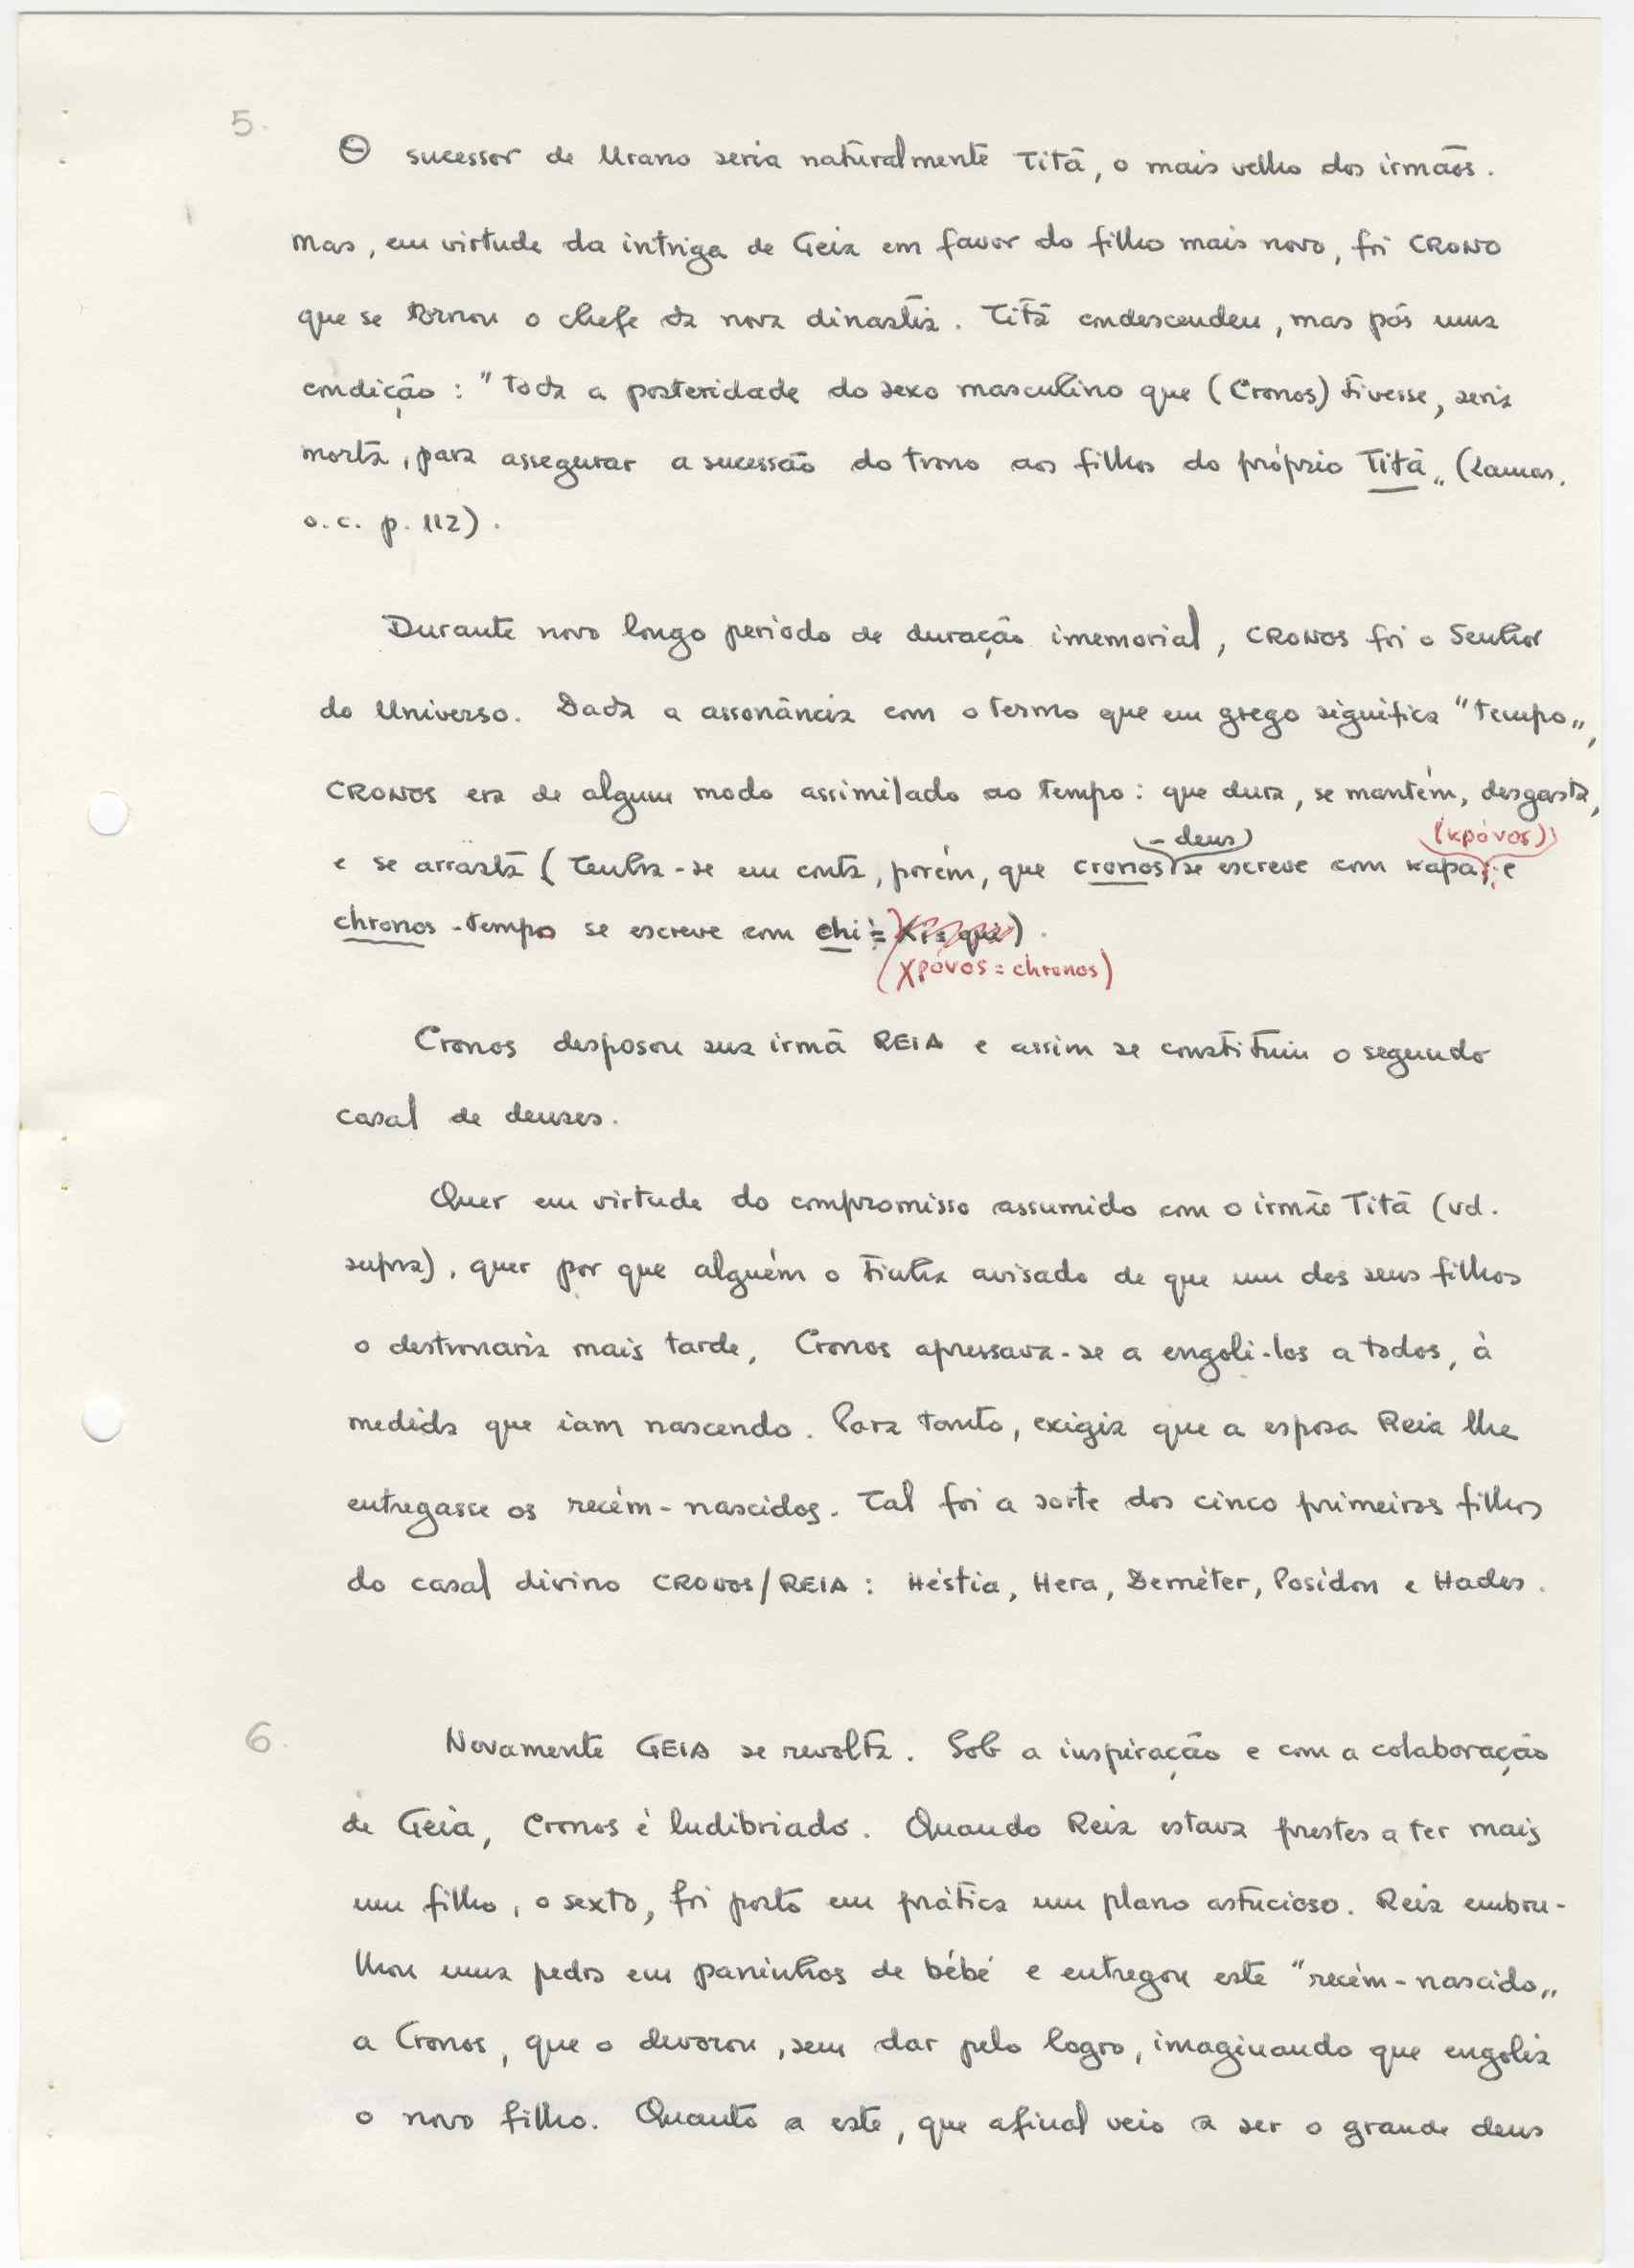 5.
O sucessor de Urano seria naturalmente Titã, o mais velho dos irmãos.
Mas, em virtude da intriga de Geia em favor do filho mais novo, foi CRONO
que se tornou o chefe da nova dinastia. Titã condescendeu, mas pôs uma
condição: "toda a posteridade do sexo masculino que (Cronos) tivesse, seria
morta, para assegurar a sucessão do trono aos filhos do próprio Titã„ (Lamas,
o.c. p. 112).
Durante novo longo período de duração imemorial, CRONOS foi o Senhor
do Universo. Dada a assonância com o termo que em grego significa "tempo„,
CRONOS era de algum modo assimilado ao tempo: que dura, se mantém, desgasta,
(- deus) (κρόνος)
e se arrasta (tenha-se em conta, porém, que cronos se escreve com kapa; e
chronos - tempo se escreve com chi =
(χρόνος = chronos)
Cronos desposou sua irmã REIA e assim se constituiu o segundo
casal de deuses.
Quer em virtude do compromisso assumido com o irmão Titã (vd.
supra), quer por que alguém o tinha avisado de que um dos seus filhos
o destronaria mais tarde, Cronos apressava-se a engoli-los a todos, à
medida que iam nascendo. Para tanto, exigia que a esposa Reia lhe
entregasse os recém-nascidos. Tal foi a sorte dos cinco primeiros filhos
do casal divino CRONOS/REIA: Héstia, Hera, Deméter, Posídon e Hades.
6.
Novamente GEIA se revolta. Sob a inspiração e com a colaboração
de Geia, Cronos é ludibriado. Quando Reia estava prestes a ter mais
um filho, o sexto, foi posto em prática um plano astucioso. Reia embru-
lhou uma pedra em paninhos de bébé e entregou este "recém-nascido„
a Cronos, que o devorou, sem dar pelo logro, imaginando que engolia
o novo filho. Quanto a este, que afinal veio a ser o grande deus